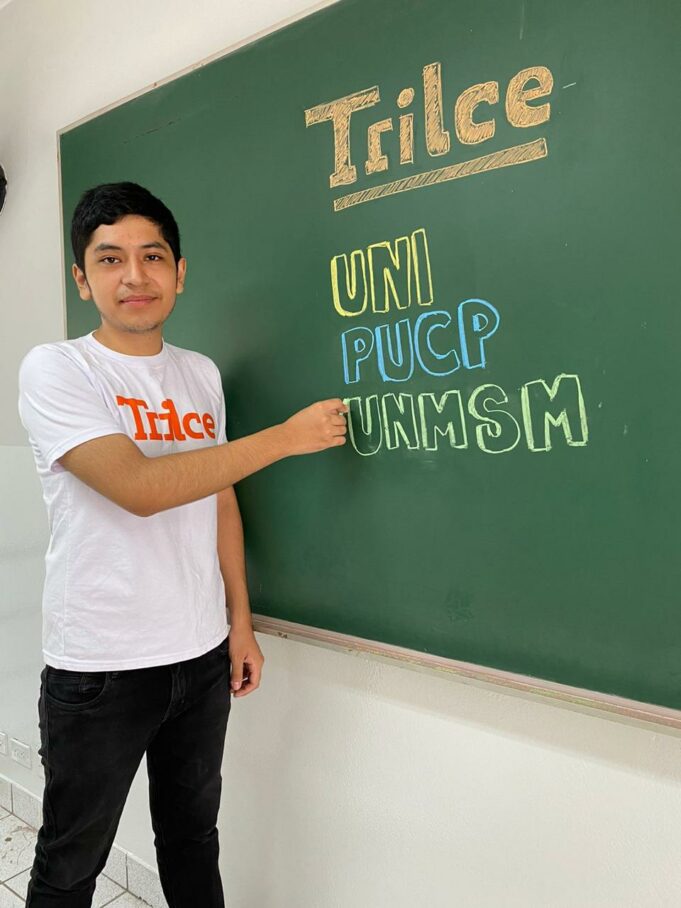 Trilce
UNI
PUCP
UNMSM
Trilce